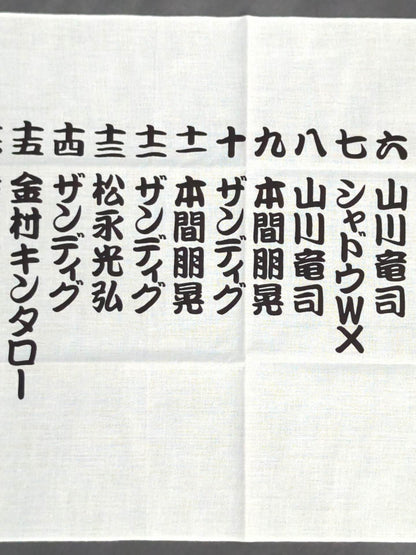 六 山川竜司
七 シャドウWX
八 山川竜司
九 本間朋晃
十 ザンディグ
十一 本間朋晃
十二 ザンディグ
十三 松永光弘
十四 ザンディグ
十五 金村キンタロー